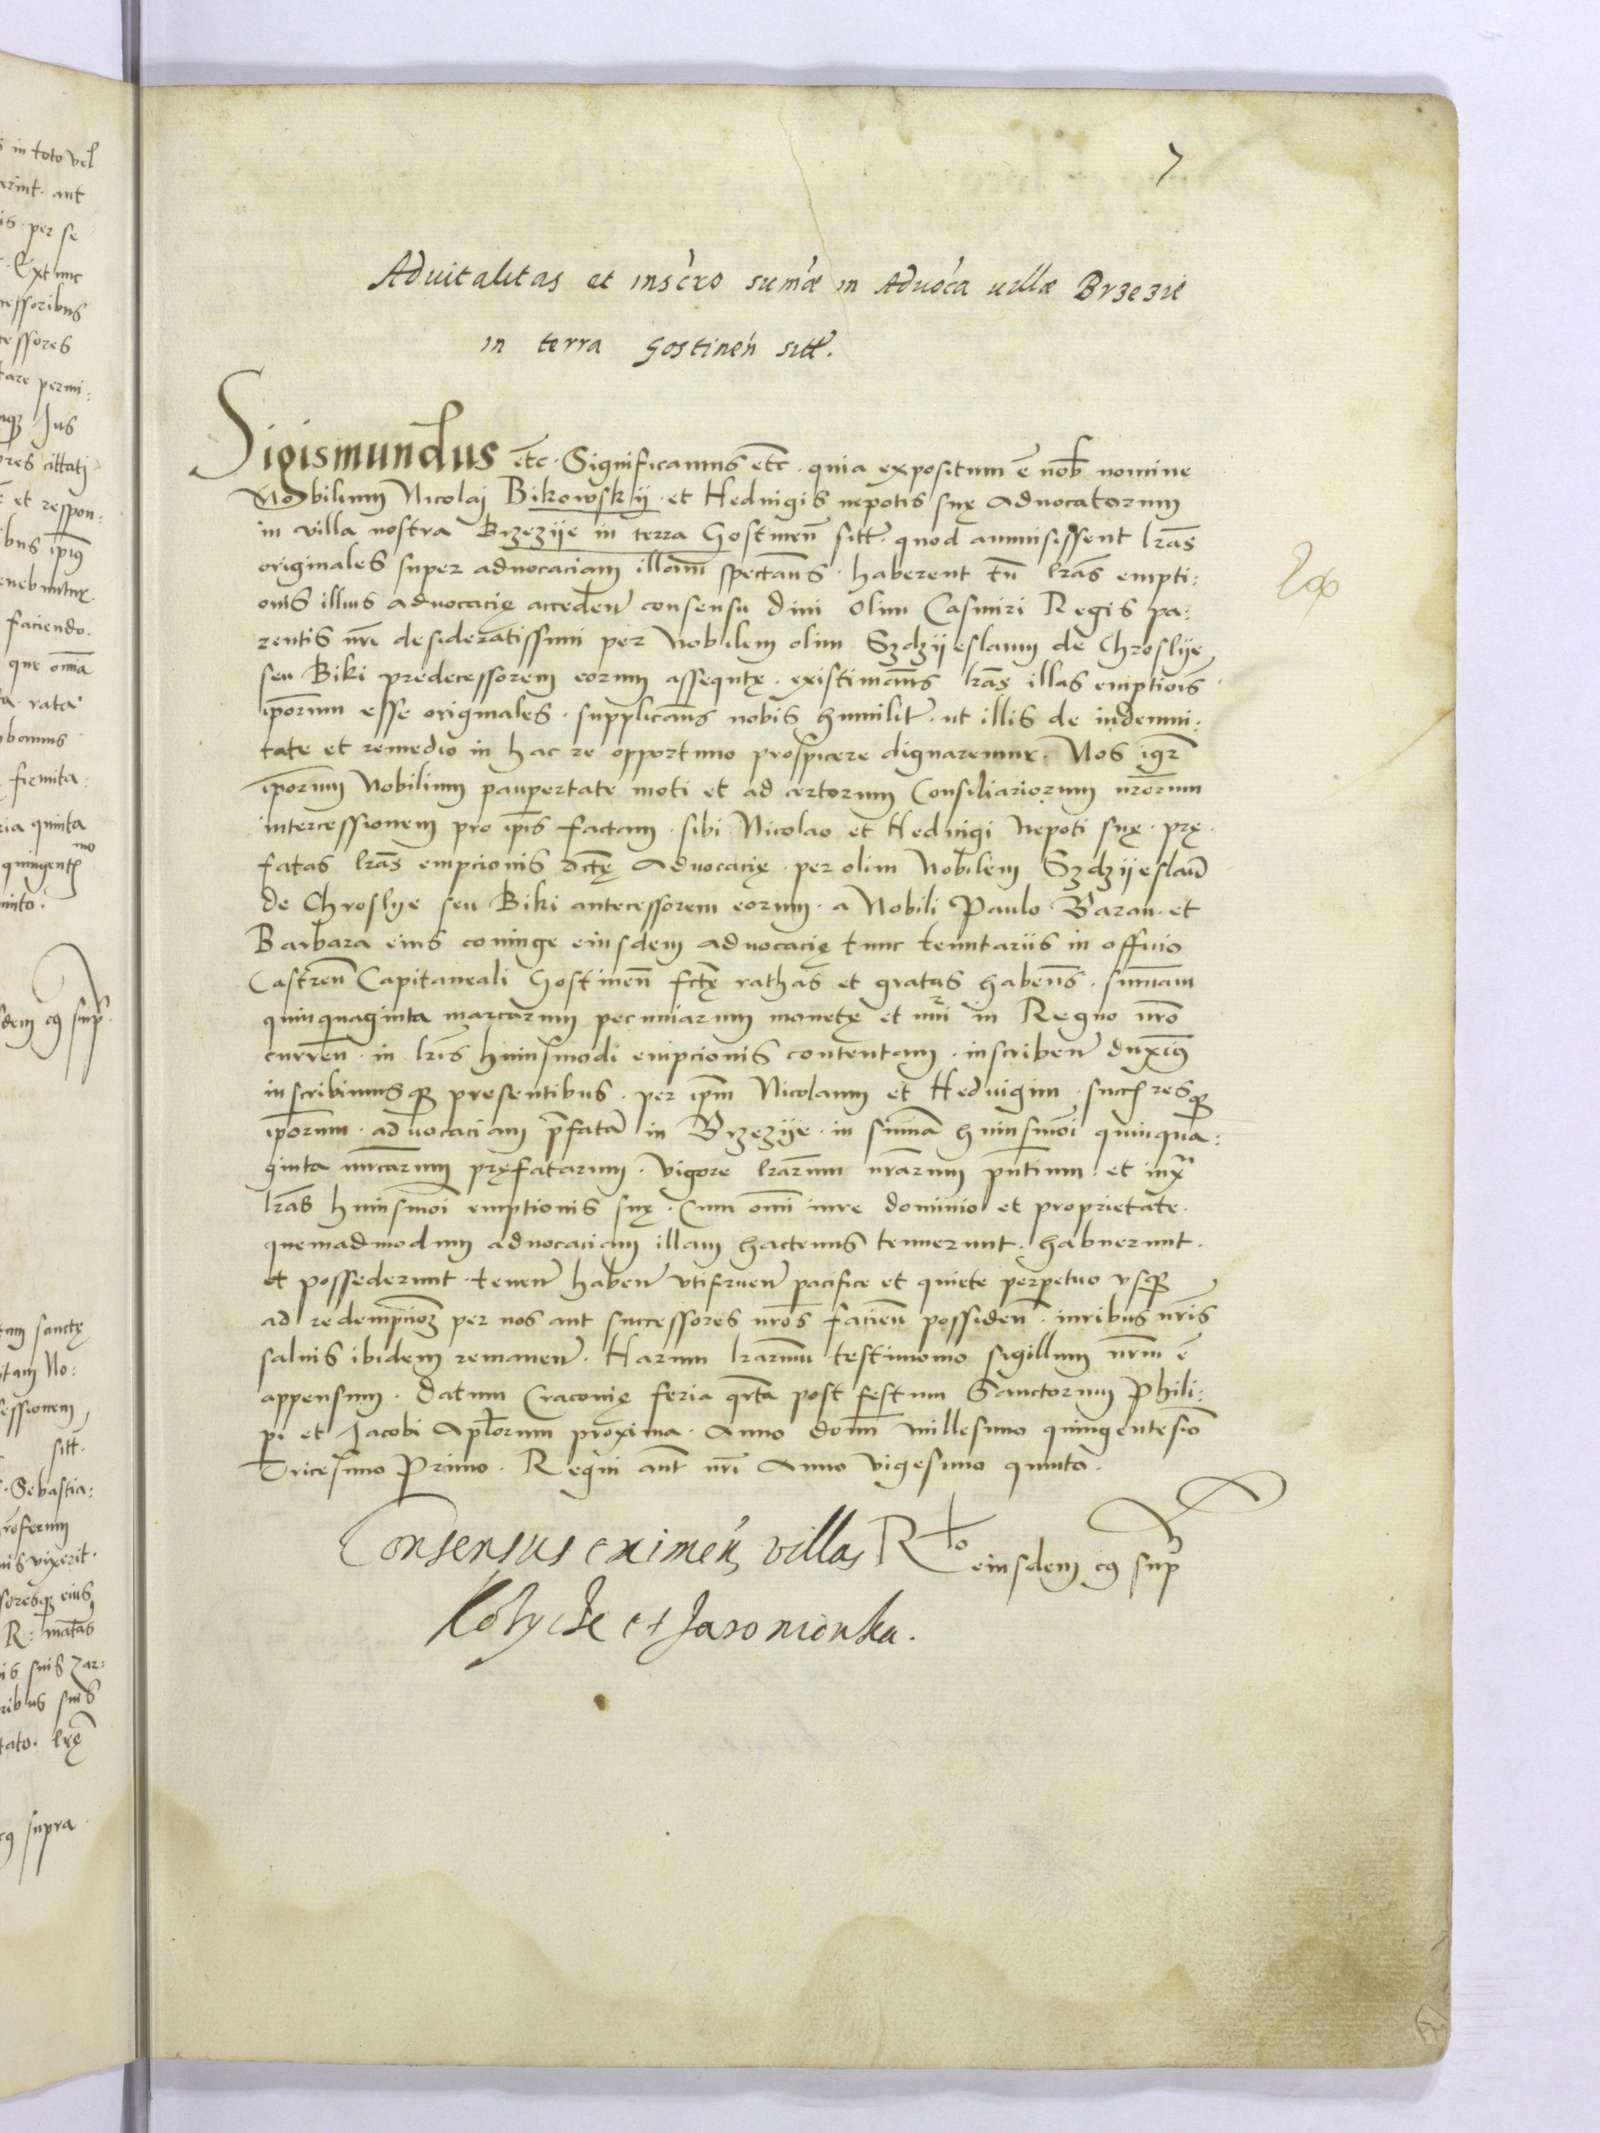 7
Aduitalitas et inscro sumæ in Aduoca uillæ Brzezie
in terra Gostinen sitt.
Sigismundus etc. Significamus etc. quia expositum e nob nomine
Nobilium Nicolaj Bikowskij. et Heduigis nepotis suę Aduocatorum
in villa nostra Brzezije in terra Gostinen sitt. quod ammisissent lras
originales super aduocaciam illam spectans. haberent tn lras empti:
onis illius aduocacię acceden consensu diui olim Casimiri Regis pa:
rentis nri desideratissimi per Nobilem olim Szdzijeslaum de Chroslije
seu Biki predecessorem eorum assequtę. existimans lras illas emptiois
iporum esse originales. supplicans nobis humilit. ut illis de indemni:
tate et remedio in hac re opportuno prospicere dignaremur. Nos igr
iporum Nobilium paupertate moti et ad certorum Consiliariorum nrorum
intercessionem pro ipis factam. sibi Nicolao et Heduigi Nepoti suę. prę.
fatas lras empcionis dctę Aduocacię. per olim Nobilem Szdzijeslau
de Chroslije seu Biki antecessorem eorum. a Nobili Paulo Baran. et
Barbara eius coniuge eiusdem aduocacię tunc tenutariis in officio
Castren Capitaneali Gostinen fctę rathas et gratas habens. sumam
quinquaginta marcarum pecuniarum monetę et nri in Regno nro
curren. in lris huiusmodi empcionis contentam. inscriben duximus
inscribimusque presentibus. per ipm Nicolaum et Heduigim. succresque
iporum. aduocaciam prefata in Brzezije. in suma huiusmoi quinqua:
ginta mrcarum pręfatarum. Vigore lrarum nrarum pntium. et iuxta
lras huiusmoi emptionis suę. Cum omi iure dominio et proprietate.
quemadmodum aduocaciam illam hactenus tenuerunt. habuerunt.
et possederunt. tenen haben vtifruen pacifice et quiete perpetuo vsque
ad redempcioz per nos aut successores nros facien possiden. iuribus nris
saluis ibidem remanen. Harum lrarum testimonio sigillum nrm e
appensum. Datum Cracouię feria qrta post festum Sanctorum Phili:
pi et Jacobi Aplorum proxima. Anno domi millesimo quingentesio
Tricesimo Primo. Regni aut nri Anno vigesimo quinto.
Consensus eximen villas Rlo eiusdem cus supr